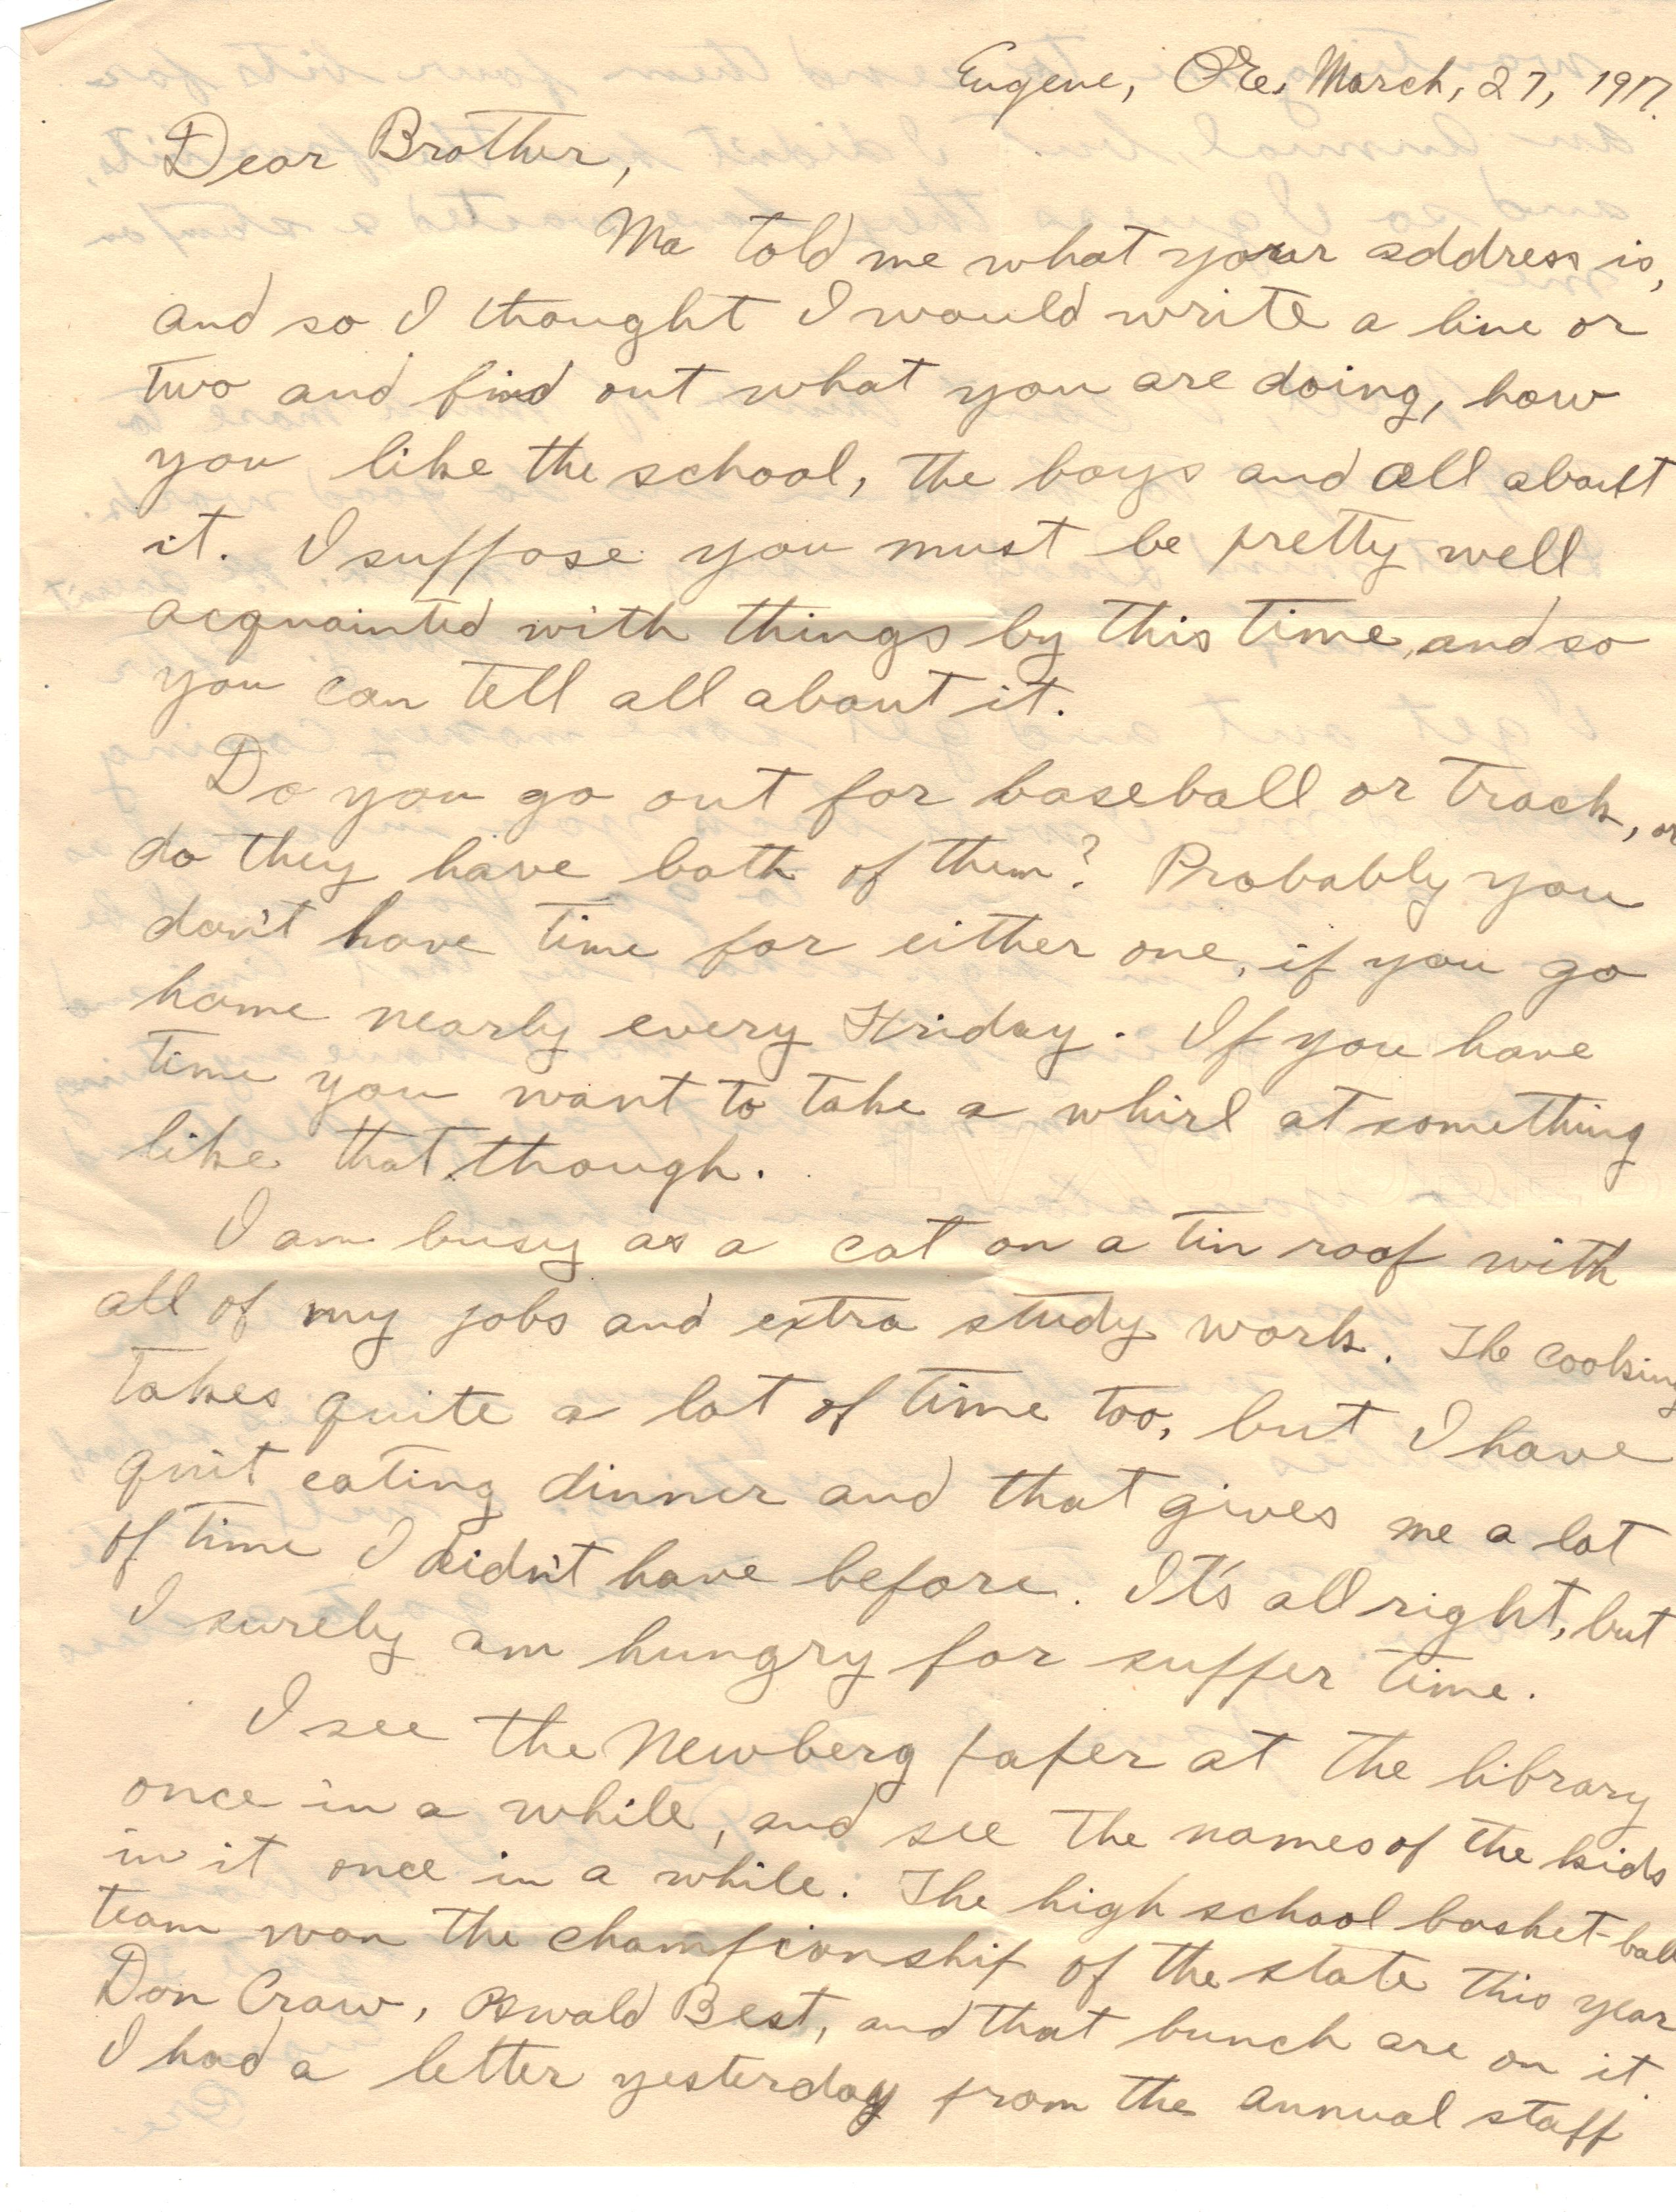 Eugene, Ore, March, 27, 1917.
Dear Brother,
Ma told me what your address is,
and so I thought I would write a line or
two and find out what you are doing, how
you like the school, the boys and all about
it. I suppose you must be pretty well
acquainted with things by this time, and so
you can tell all about it.
Do you go out for baseball or track, or
do they have both of them? Probably you
don't have time for either one, if you go
home nearly every Friday. If you have
time you want to take a whirl at something
like that though.
I am busy as a cat on a tin roof with
all of my jobs and extra study work. The cooking
takes quite a lot of time too, but I have
quit eating dinner and that gives me a lot
of time I didn't have before. It's all right, but
I surely am hungry for supper time.
I see the Newberg paper at the library
once in a while, and see the names of the kids
in it once in a while. The high school basket-ball
team won the championship of the state this year
Don Craw, Oswald Best, and that bunch are on it.
I had a letter yesterday from the annual staff